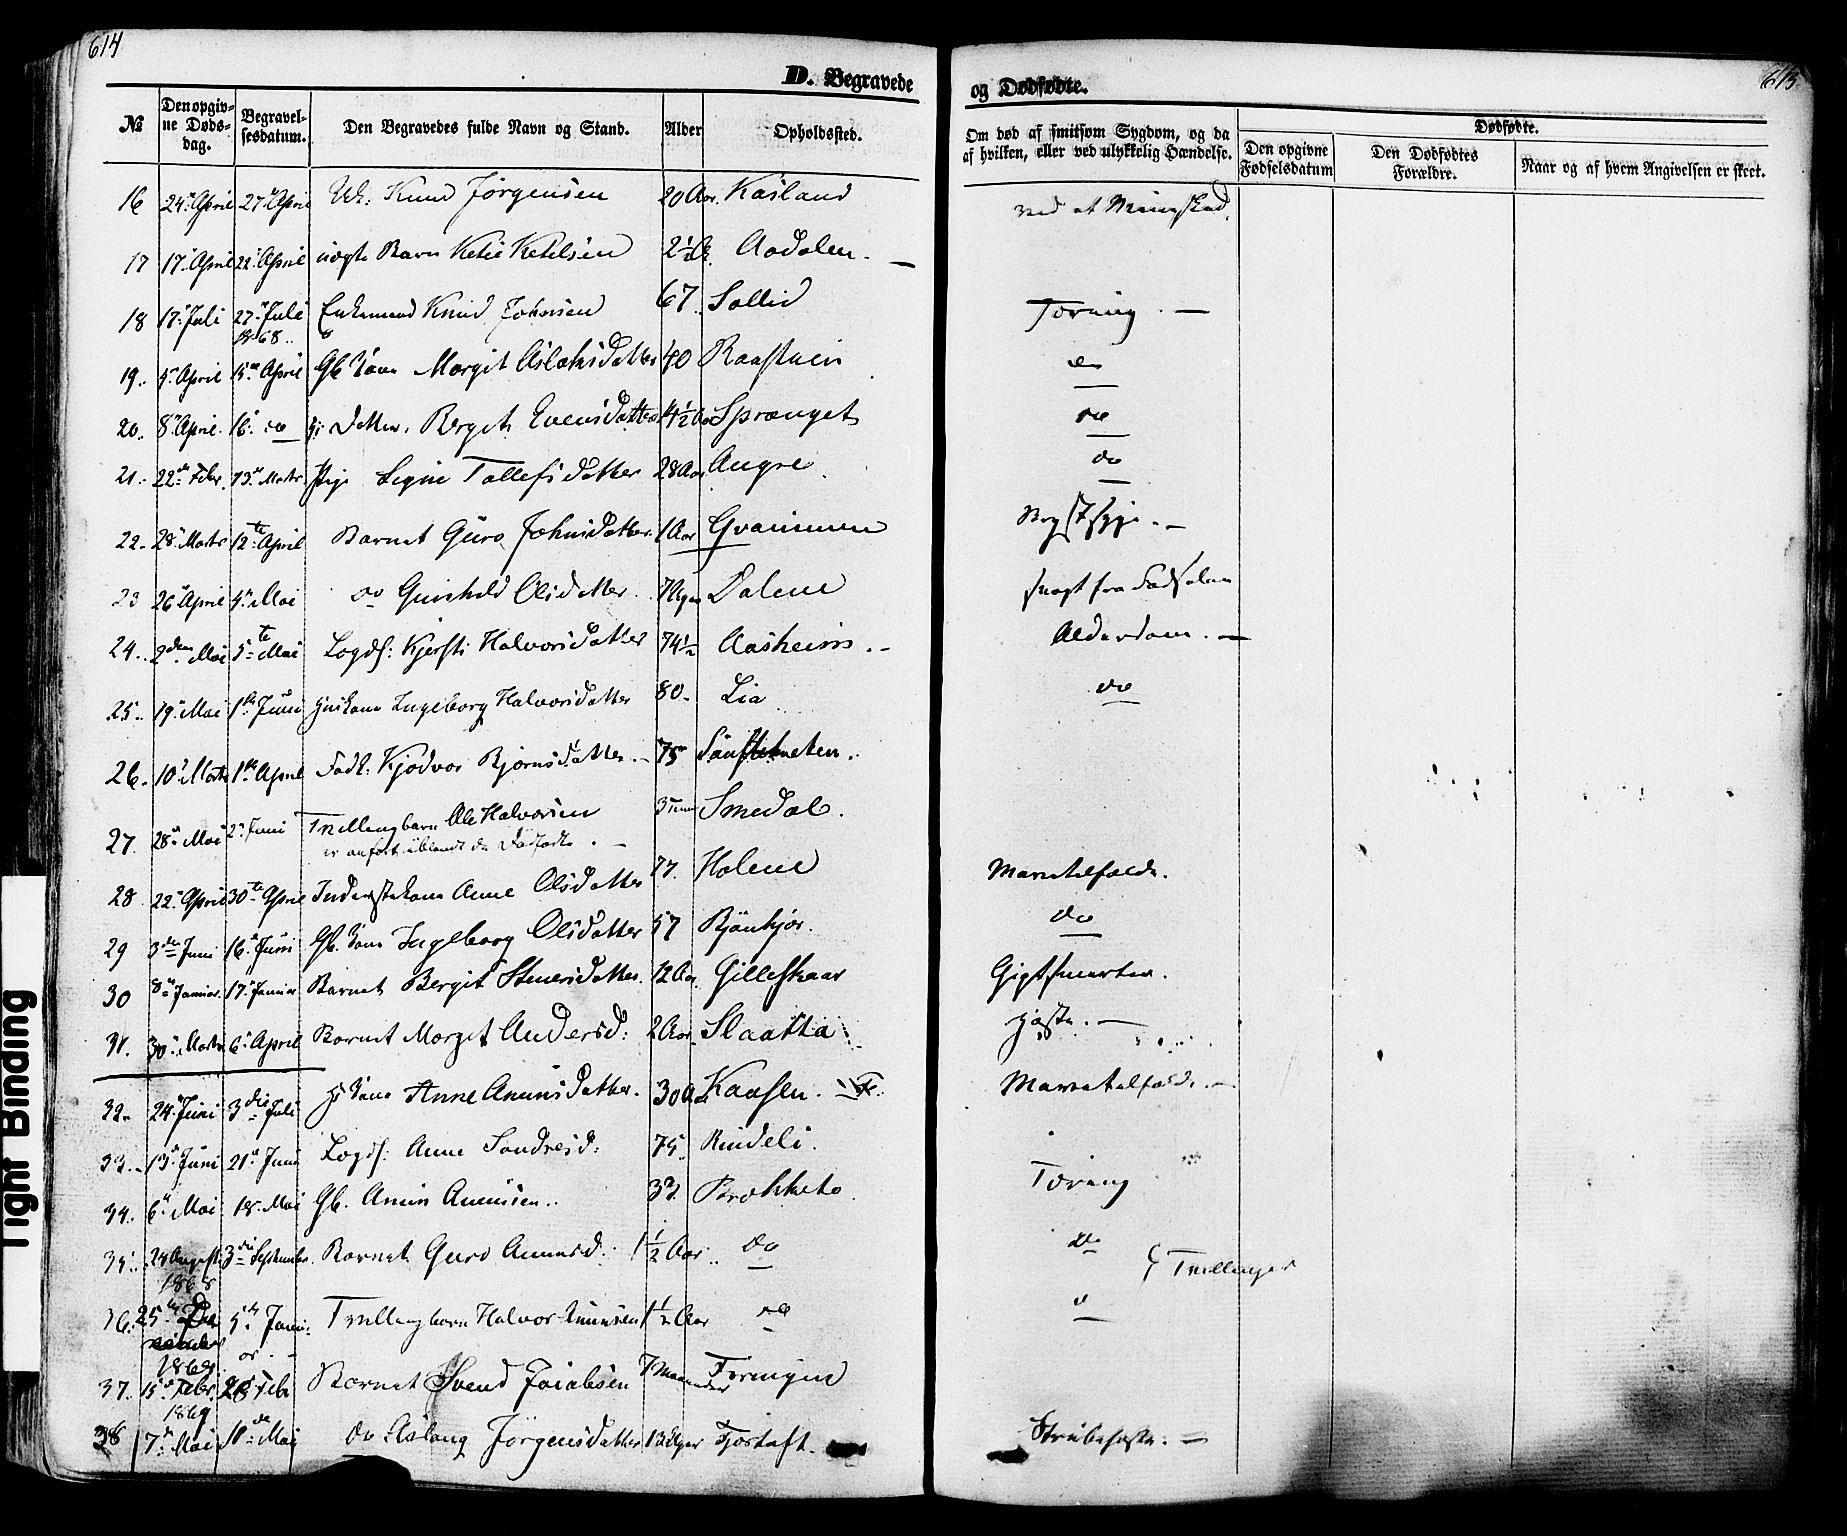 614
D. Begravede
og Dødfødte.
615
№ Den opgivne Dødsdag. Begravelsesdatum. Den Begravedes fulde Navn og Stand. Alder Opholdssted. Om død af smitsom Sygdom, og da af hvilken, eller ved ulykkelig Hændelse. Dødfødte.
Den opgivne Fødselsdatum Den Dødfødtes Forældre. Naar og af hvem Angivelsen er skeet.
16 24 April 27 April Knud Jørgensen 20 Aar Kasland ved et
17 17 April 22 April uægte Barn Ketil Ketilsen 2½ Aadalen. —
18 17 Juli 27 Juli Enkemand Knud Johnsen 67 Sollid Tæring. —
68.
19. 5 April 15 April Gb. Kone Margit Aslaksdatter 40 do
20. 8 April 16 do Datter. Bergit Evensdatter 4½ Aar Spranget do
21. 22de Febr. 13 Marts Pige Signe Tollefsdatter 28 Aar Augre do
22. 28 Marts 12te April Barnet Guro Johnsdatter 1 Aar Gvammen Brystsyge. —
23 26 April 5 Mai do Gunhild Olsdatter. 7 Uger Dalene svagt fra Fødselen
24. 2den Mai 5te Mai Logds: Kjersti Halvorsdatter 74½ Aasheim. — Alderdom. —
25. 19 Mai 1ste Juni Huskone Ingeborg Halvorsdatter 80. Lia do
26. 10 Marts 1ste April Fadt. Kjødvor Bjørnsdatter. — 75
27. 28 Mai 2 Juni Trillingbarn Ole Halvorsen 3 Smedal.
er anført iblandt de Dødfødte. —
28 22 April 30te April Inderstekone Anne Olsdatter 77. Holene Mavetilfælde.
29 3de Juni 16 Juni Gb. Kone Ingeborg Olsdatter 57 do
30 8 Januar 17 Januar Barnet Bergit Steinersdatter. 12 Aar Gilleskaar Gigtsmerter.
31. 30 Marts 6 April Barnet Margit Andersd: 2 Aar Slaatta. Hoste. —
32. 24 Juni 3die Juli Kone Anne Amunsdatter. 30 Aar Kaasen. Mavetilfælde. —
33. 13 Juni 21 Juni Logds: Anne Sondresd: 75 Rindeli.
34. 6 Mai 18 Mai Gb. Amun Amunsen. 33. Brokketo. Tæring
35. 24 August 3die September. Barnet Guro Amunsd. 1½ Aar. do do
1868 Trillinger
36. 25de 5te Januar Trillingbarn Halvor Amunsen 1½ Aar do
1868
37. 15 Febr. 28 Febr Barnet Svend Jacobsen 7 Maaneder Foringen
1869
38 7de Mai de Mai do Aslaug Jørgensdatter 13 Uger Fjortoft. Strubehoste. —
Tight Binding